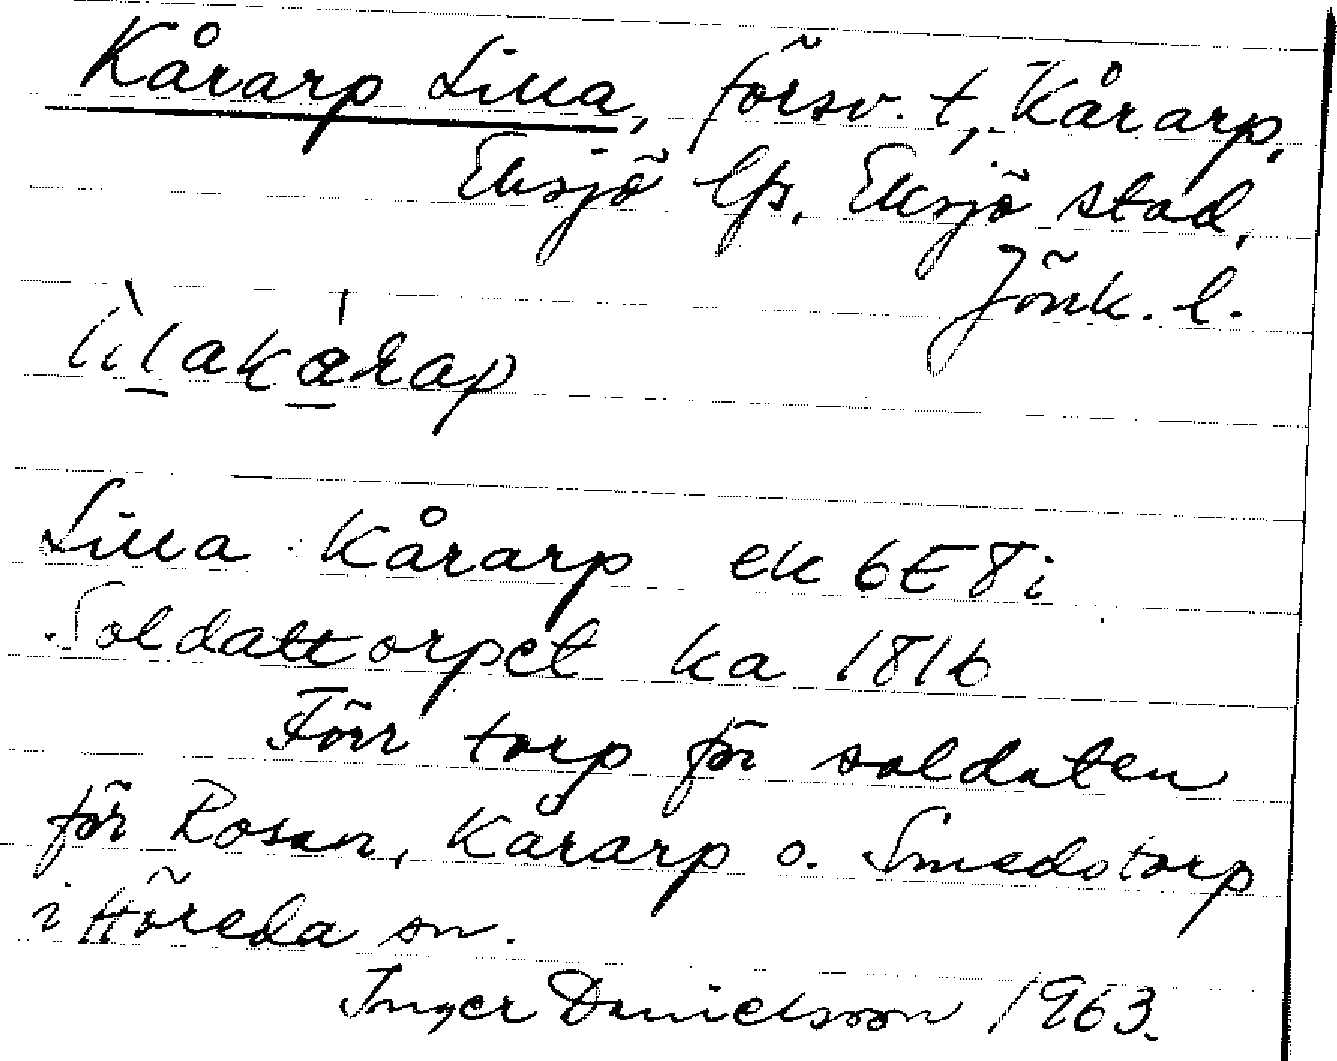 Kårarp Lilla, försv. t, Kårarp,
Eksjö lfs, Eksjö stad,
Jönk. l.
Lilla Kårarp ek 6E8i
Soldattorpet ka 1816
Förr torp för soldaten
för Rosen, Kårarp o. Smedstorp
i Höreda sn.
Inger Danielsson 1963.